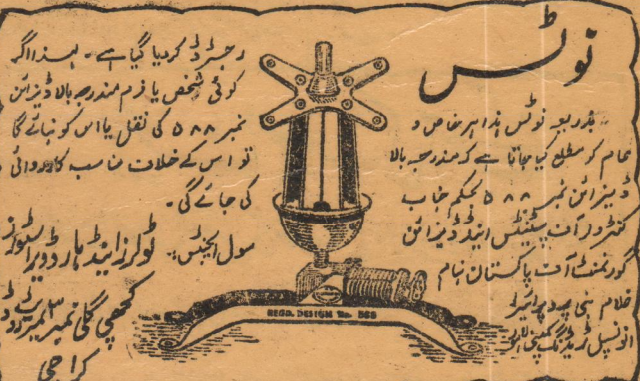 نوٹس
بذریعہ نوٹس ہذا ہر خاص و
عام کو مطلع کیا جاتا ہے کہ مندرجہ بالا
ڈیزائن نمبر ۵۸۸ بحکم جناب
کنٹرولر آف پیٹنٹس اینڈ ڈیزائن
گورنمنٹ آف پاکستان بنام
غلام نبی پروپرائیٹر
ٹریڈنگ کمپنی
رجسٹرڈ کر دیا گیا ہے۔ لہذا اگر
کوئی شخص یا فرم مندرجہ بالا ڈیزائن
نمبر ۵۸۸ کی نقل یا اس کو بنائے گا
تو اس کے خلاف مناسب کارروائی
کی جائے گی۔
سول ایجنٹس:۔ ٹولرز اینڈ ہارڈویر اسٹورز
کچھی گلی نمبر ۳ میریٹ روڈ
کراچی
REGD. DESIGN No. 588